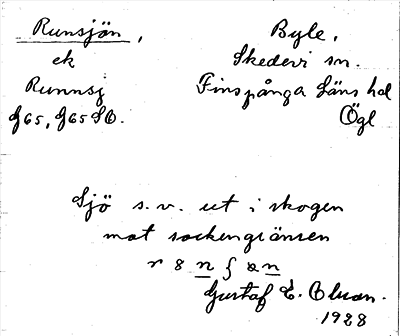 Runsjön,
ek
Runnsj
G65, G65 SO.
Byle,
Skedevi sn.
Finspånga Läns hd
Ögl
Sjö s.v. ut i skogen
mot sockengränsen
Gustaf E. Olsson.
1928